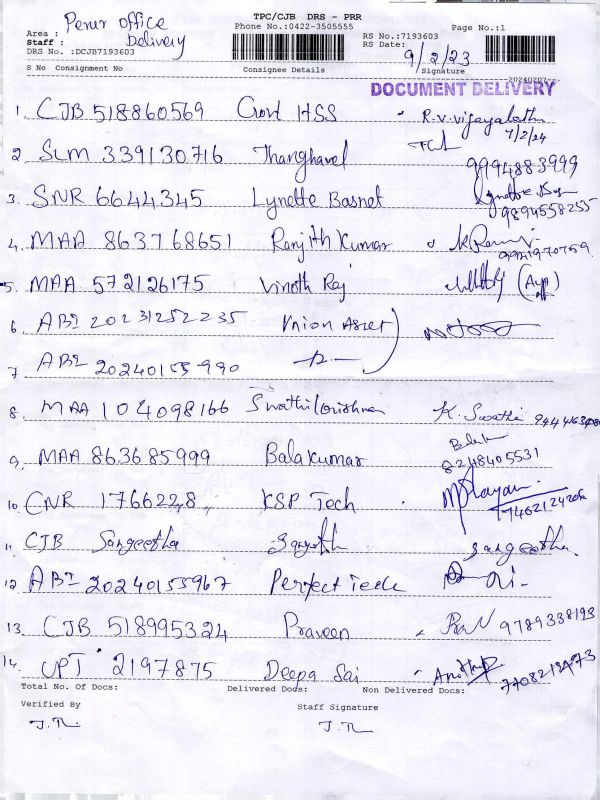 TPC/CJB DRS - PRR
Phone No.:0422-3505555
Page No.:1
Area : Perur office
Staff : Delivery
DRS No. :DCJB7193603
RS No.:7193603
RS Date: 9/2/23
S No Consignment No Consignee Details Signature
20240207
DOCUMENT DELIVERY
1. CJB 518860569 Govt HSS R.V.Vijayalathi 7/2/24
2 SLM 339130716 Thanghavel 9994883999
3. SNR 6644345 Lynette Basnet 9894558255
4. MAA 863768651 Ranjith Kumar
5. MAA 572126175 Vinoth Raj
6 ABI 20231252235 Union Asset
7 ABI 20240155990
8. MAA 104098166 Swathikrishna K. Swathi
9. MAA 863685999 Balakumar 8248405531
10. CNR 1766228, KSP Tech
11. CJB Sangeetha Sangeetha.
12 ABI 20240155967 Perfect Tech
13. CJB 518995324 Praveen 9789338193
14. UPT 2197875 Deepa Sai
Total No. Of Docs: Delivered Docs: Non Delivered Docs:
Verified By Staff Signature